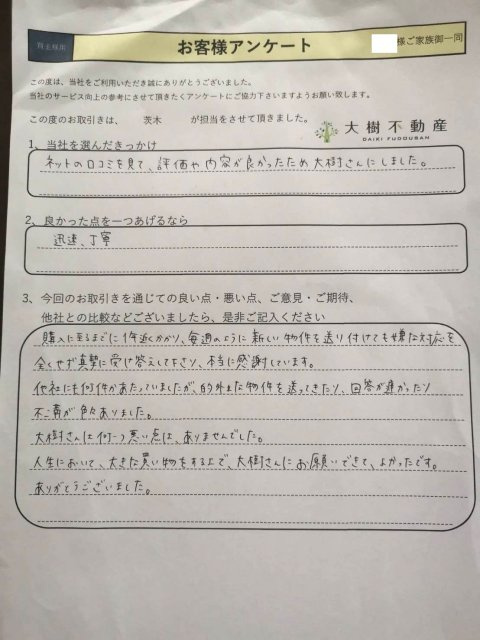 買主様用
お客様アンケート
様ご家族御一同
この度は、当社をご利用いただき誠にありがとうございました。
当社のサービス向上の参考にさせて頂きたくアンケートにご協力下さいますようお願い致します。
この度のお取引きは、 茨木 が担当をさせて頂きました。
大樹不動産
DAIKI FUDOUSAN
1、当社を選んだきっかけ
ネットの口コミを見て、評価や内容が良かったため大樹さんにしました。
2、良かった点を一つあげるなら
迅速、丁寧
3、今回のお取引きを通じての良い点・悪い点、ご意見・ご期待、
他社との比較などございましたら、是非ご記入ください
購入に至るまでに1年近くかかり、毎週のように新しい物件を送り付けても嫌な対応を
全くせず真摯に受け答えして下さり、本当に感謝しています。
他社にも何件かあたっていましたが、的外れな物件を送ってきたり、回答が遅かったり
不満が色々ありました。
大樹さんは何一つ悪い点は、ありませんでした。
人生において、大きな買い物をする上で、大樹さんにお願いできて、よかったです。
ありがとうございました。